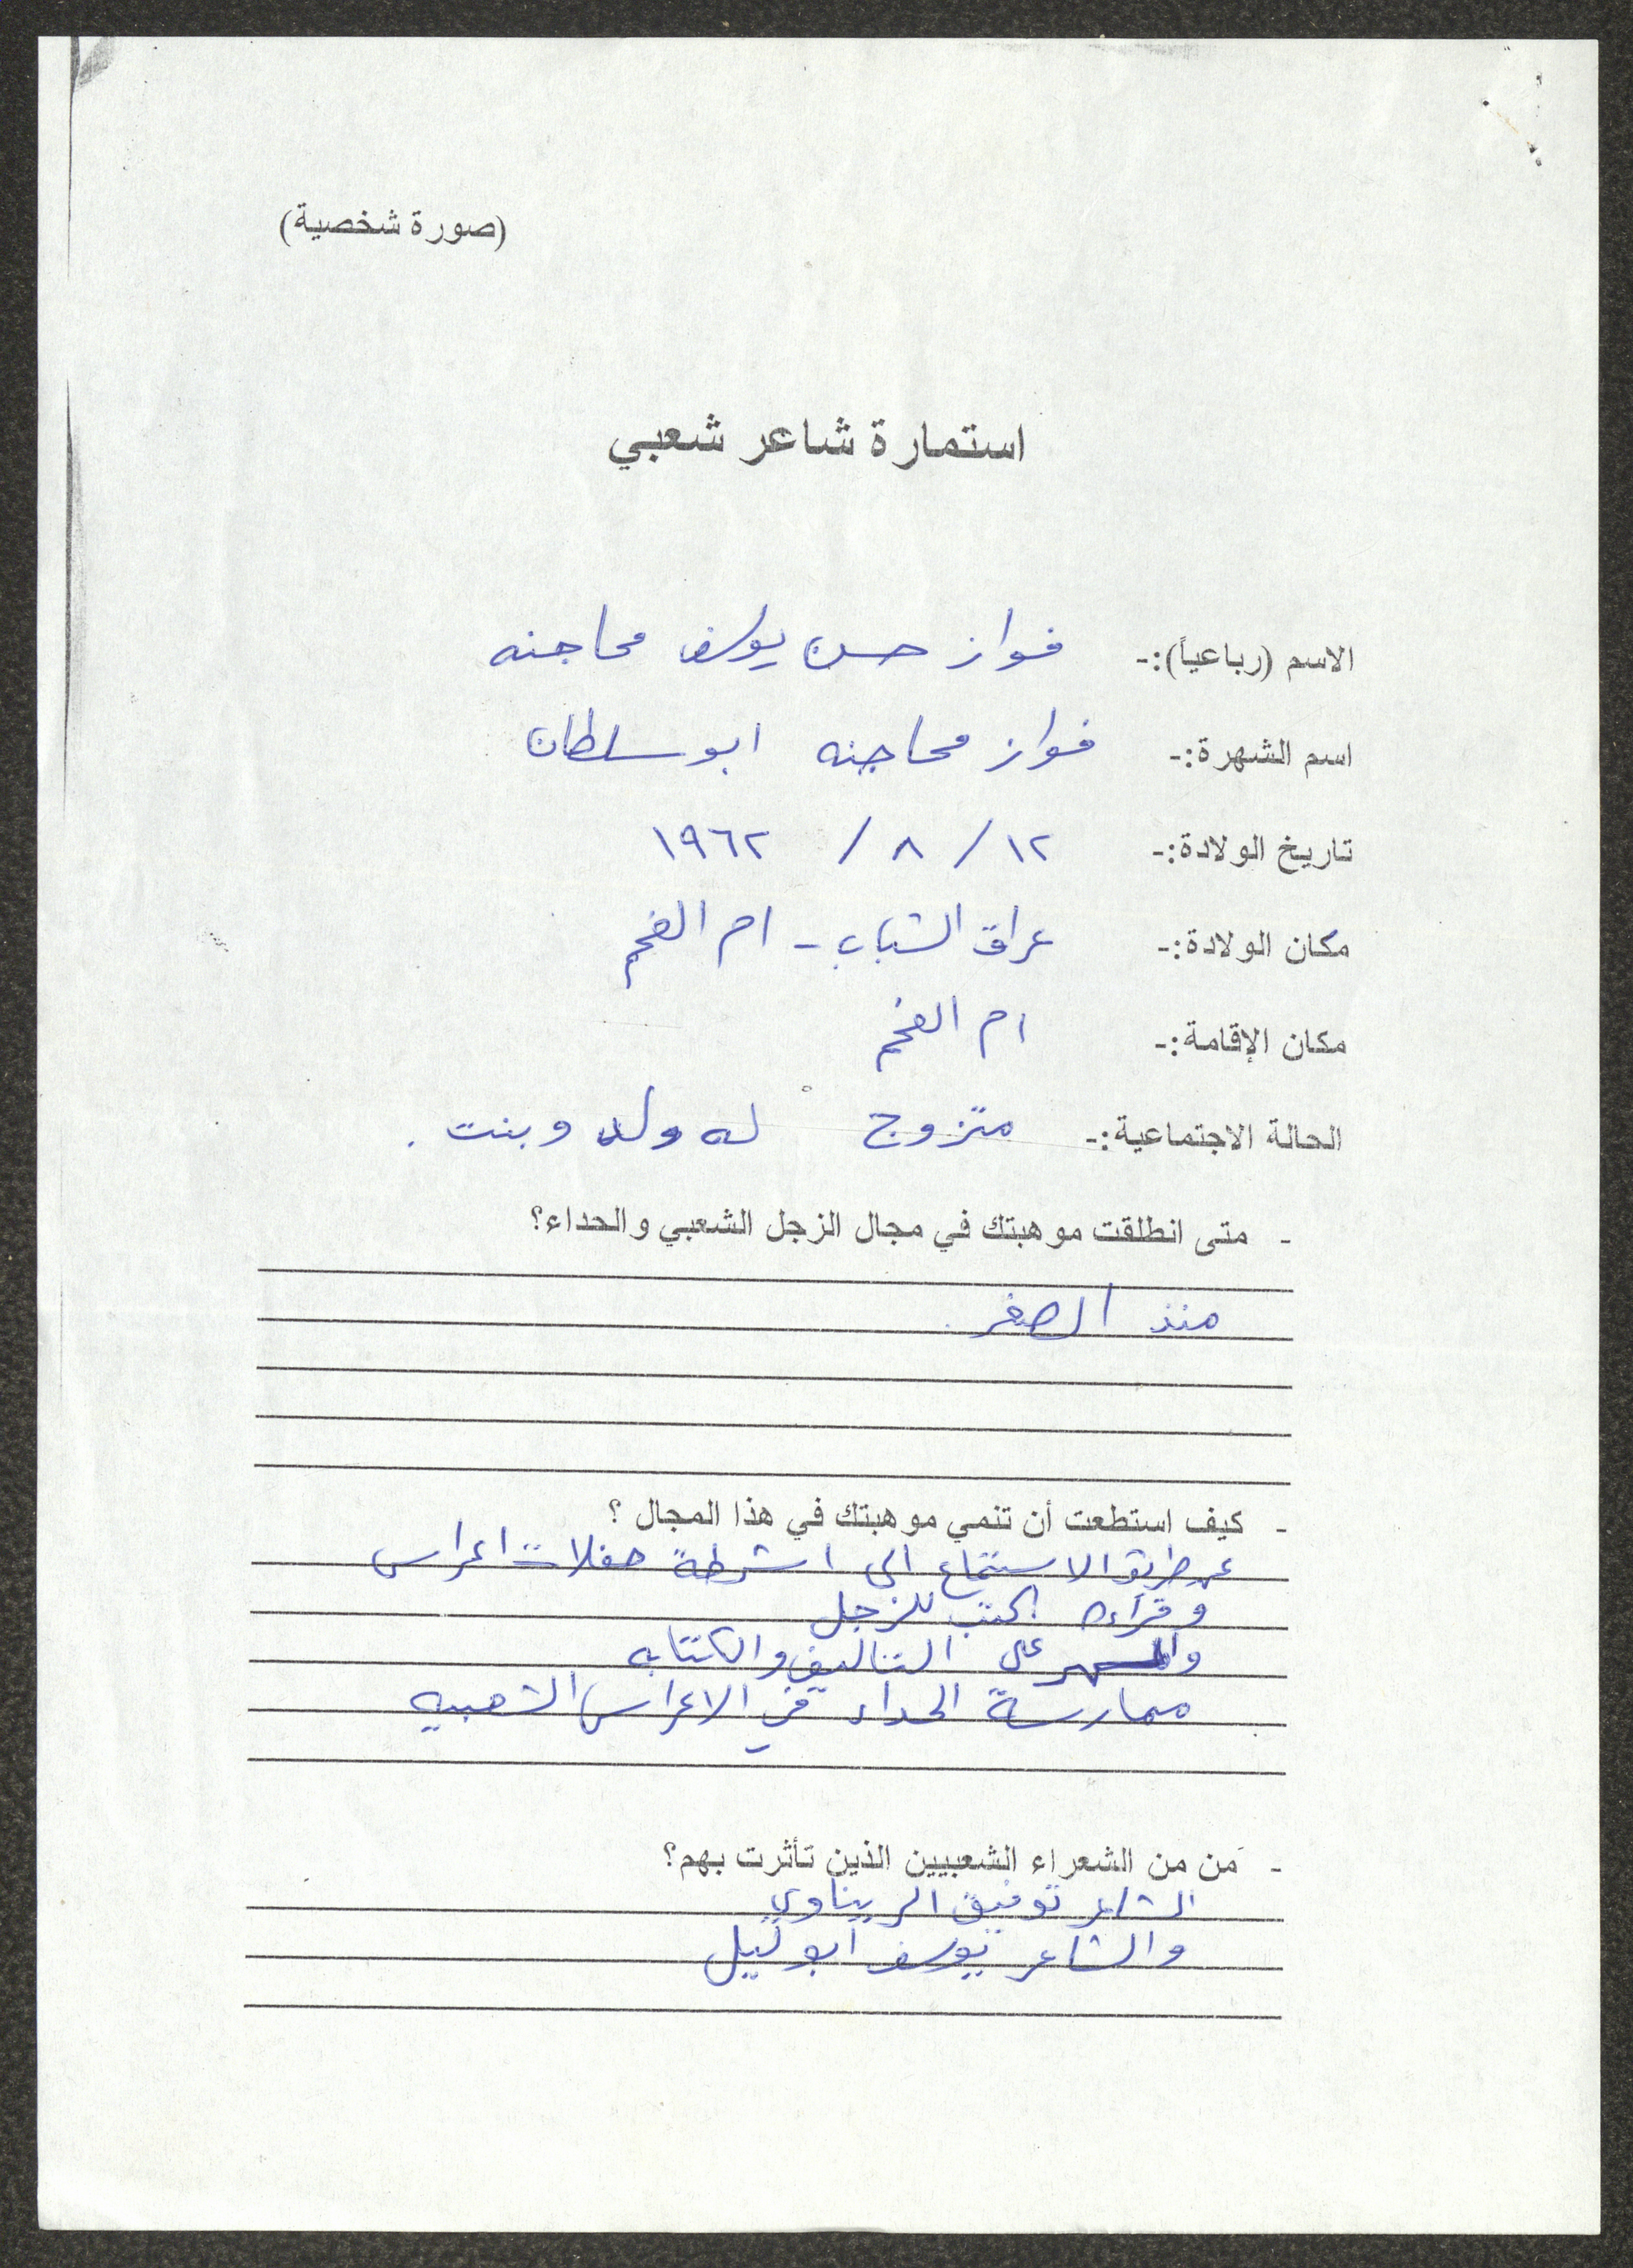 (صورة شخصية)
استمارة شاعر شعبي
الاسم (رباعياً):- فواز حسن يوسف محاجنه
اسم الشهرة:- فواز محاجنه ابو سلطان
تاريخ الولادة:- ١٢ / ٨ / ١٩٦٢
مكان الولادة:- عراق الشباب - ام الفحم
مكان الإقامة:- ام الفحم
الحالة الاجتماعية:- متزوج له ولد وبنت .
- متى انطلقت موهبتك في مجال الزجل الشعبي والحداء؟
منذ الصغر .
- كيف استطعت أن تنمي موهبتك في هذا المجال ؟
عن طريق الاستماع الى اشرطة حفلات اعراس
وقراءه كتب للزجل
والسهر على التاليف والكتابه
ممارسة الحداء في الاعراس الشعبيه
- مَن من الشعراء الشعبيين الذين تأثرت بهم؟
الشاعر توفيق الريناوي
والشاعر يوسف ابو ليل